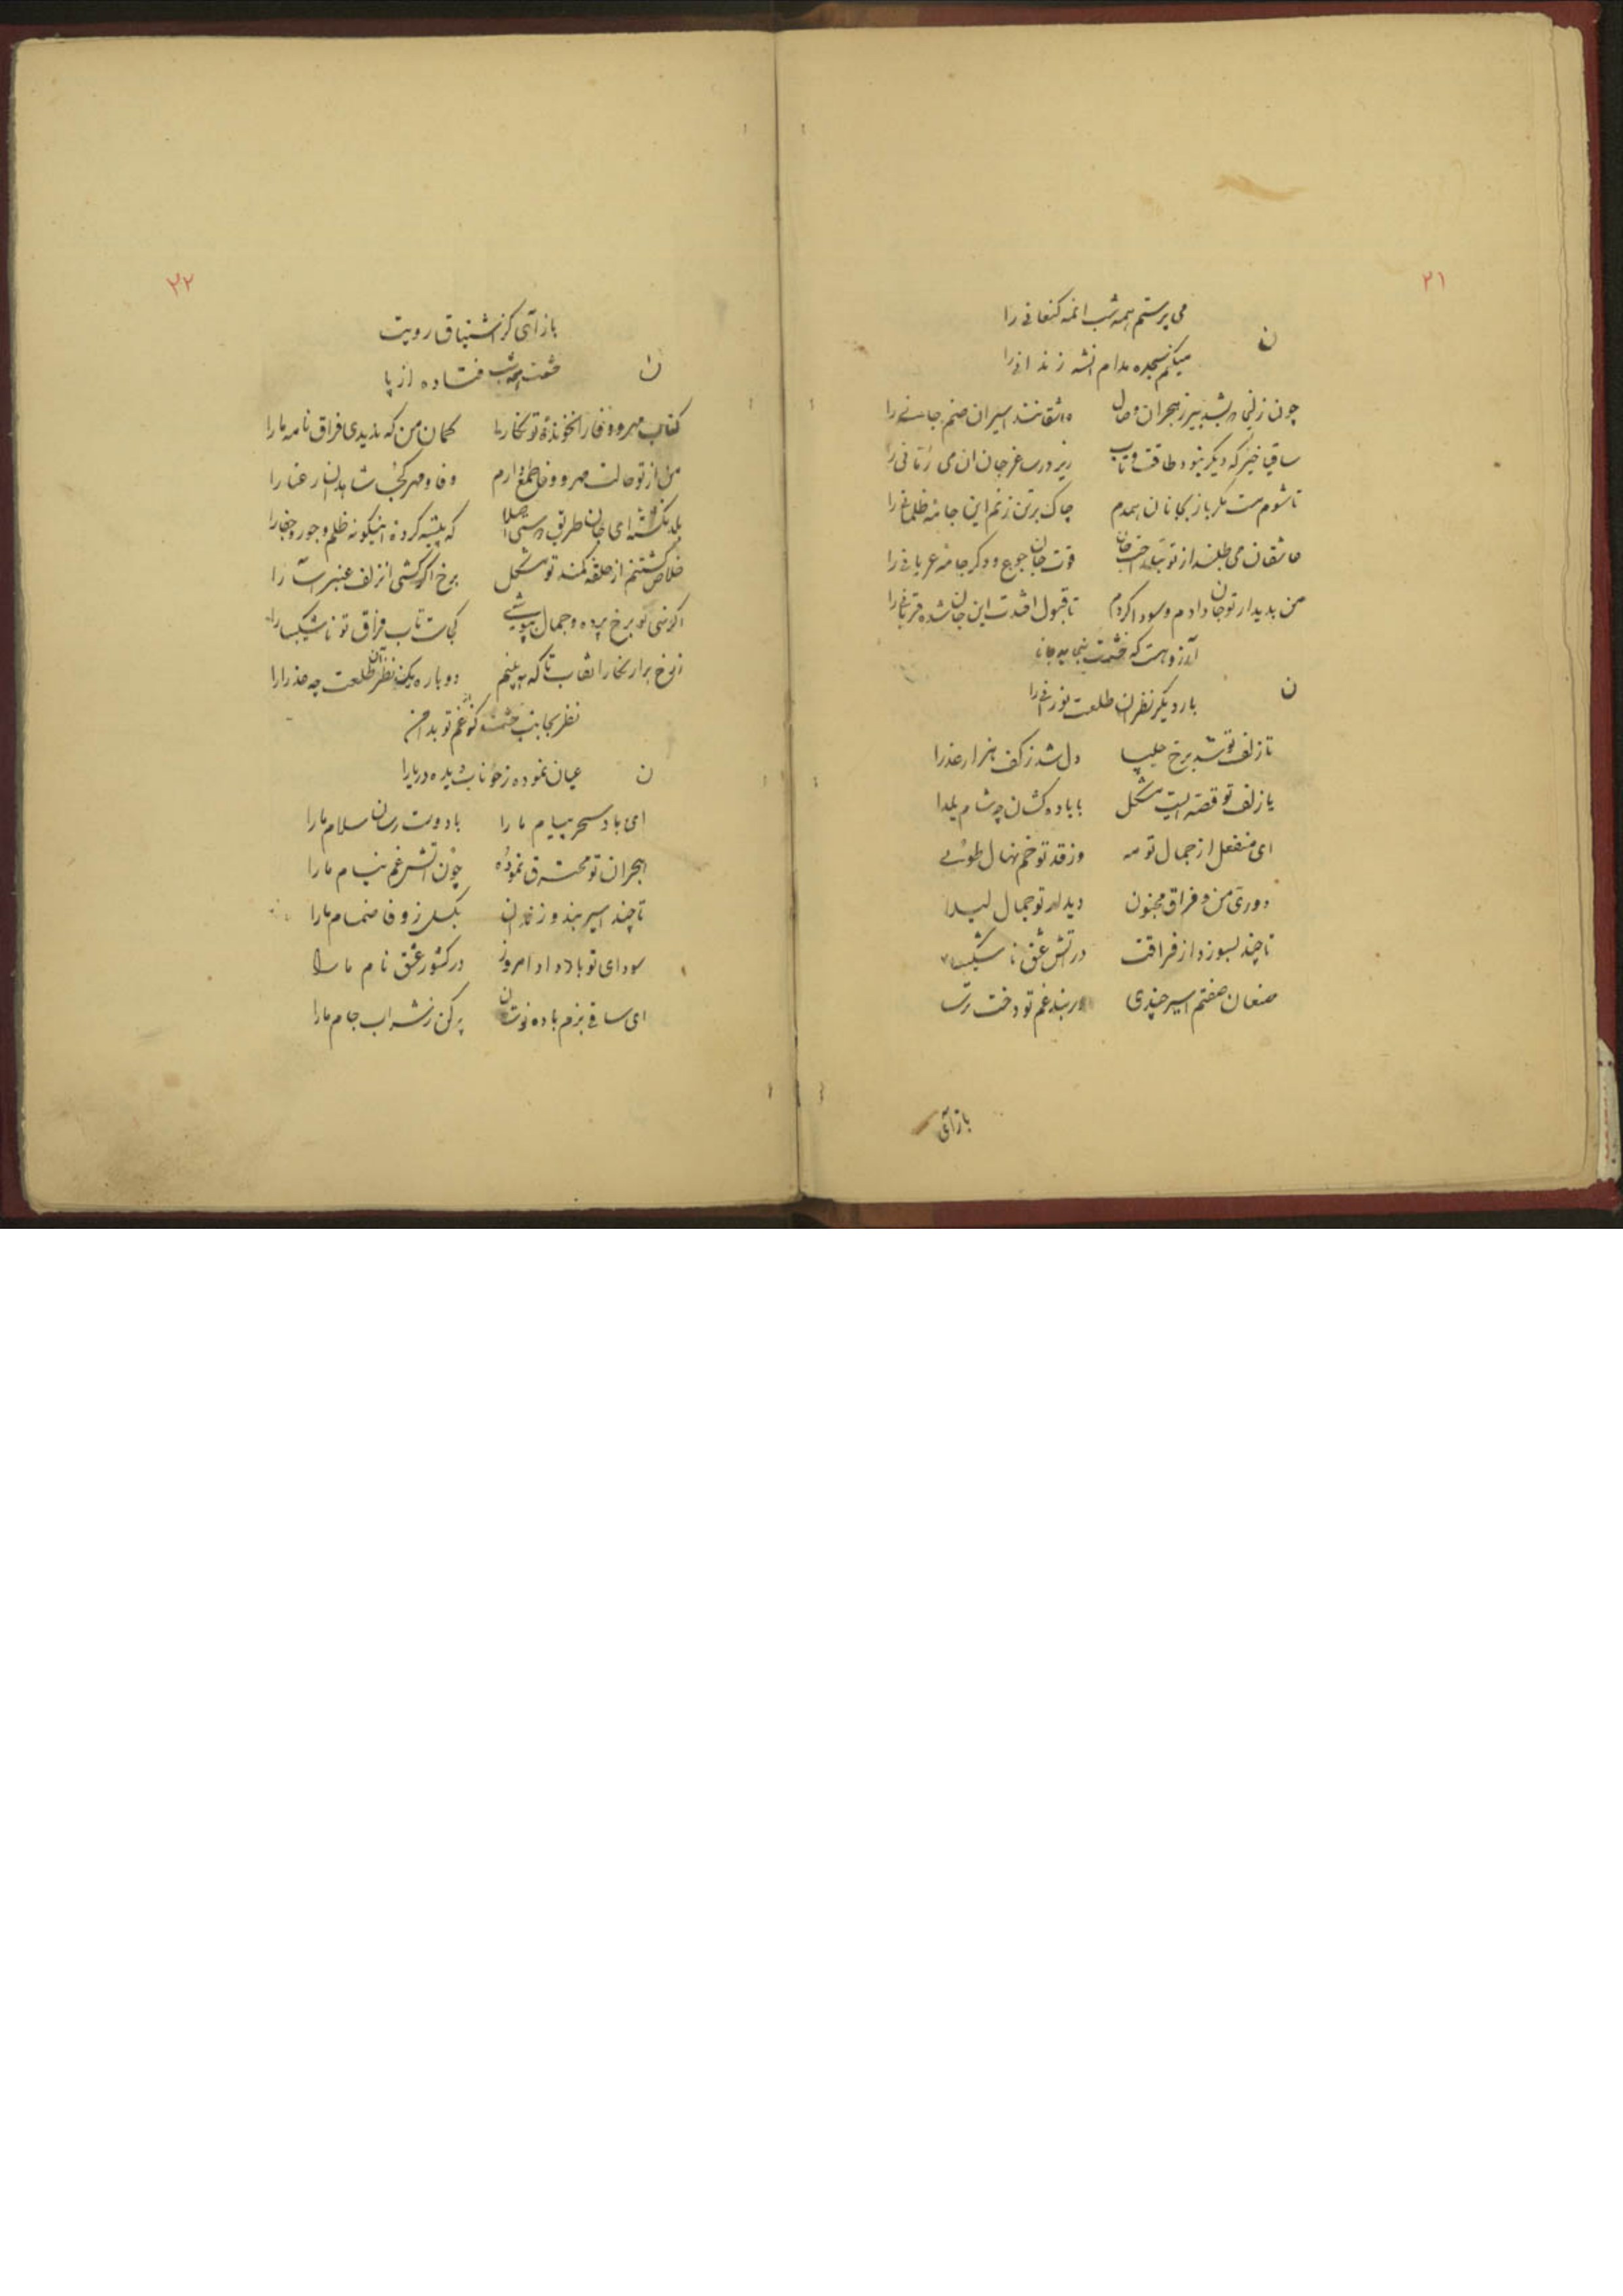 ۲۱
می پرستم همه شب انمه کنعانی را
ن
میکنم سجده مدام انشه زندانی را
چون زلیخا شد پیر ز هجران وصال عاشقانند اسیران صنم جانی را
ساقیا خیز که دیگر نبود طاقت و تاب ریز در ساغر جان ان می رمانی را
تا شوم مست مگر باز بجانان همدم چاک برتن زنم این جامه ظلمانی را
عاشقان می طلبند از تو قوت جان جوع و دگر جامه عریانی را
من بدیدار تو جان دادم و سودا کردم تا قبول افتدت این جان شده قربانی را
آرزو هست که حشمت
ن
بار دیگر نظر ان طلعت نورانی را
تا زلف تو شد برخ چلیپا دل شد ز کف هزار عذرا
با زلف تو قصه ایست مشکل با باده کشان چه شام یلدا
ای منفعل از جمال تو مه وز قد تو خم نهال طوبی
دوری من و فراق مجنون دیدار تو جمال لیلا
تا چند بسوزد از فراقت در آتش عشق ناشکیبا
صنعان صفتم اسیر چندی در بند غم تو دخت ترسا
باز آی
۲۲
باز آی کز اشتیاق رویت
ن
حشمت همه شب فتاده از پا
کتاب مهر و وفا را نخوانده تو نگارا گمان من که ندیدی فراق نامه ما را
من از تو حالت مهر و وفا طمع دارم وفا و مهر کجا شاهدان رعنا را
بلد نگشته ای جان طریق که پیشه کرده اینگونه ظلم و جور و جفا را
خلاص گشتنم از حلقه کمند تو مشکل برخ اگر کشی از زلف عنبرآسا را
اگر کشی تو برخ پرده و جمال بپوشی کجاست تاب فراق تو ناشکیبا را
ز رخ برار نگارا نقاب تا که ببینم دوباره یک نظر آن طلعت چه عذرا را
نظر بجانب حشمت کز غم تو بدامن
ن
عیان نموده ز خوناب دیده دریا را
ای باد سحر پیام ما را با دوست رسان سلام ما را
هجران تو محترق نموده چون آتش غم نیام ما را
تا چند اسیر بند و زندان بگسل ز وفا ضمام ما را
سودای تو باد داد امروز در کشور عشق نام ما را
ای ساقی بزم باده نوشان پر کن ز شراب جام ما را